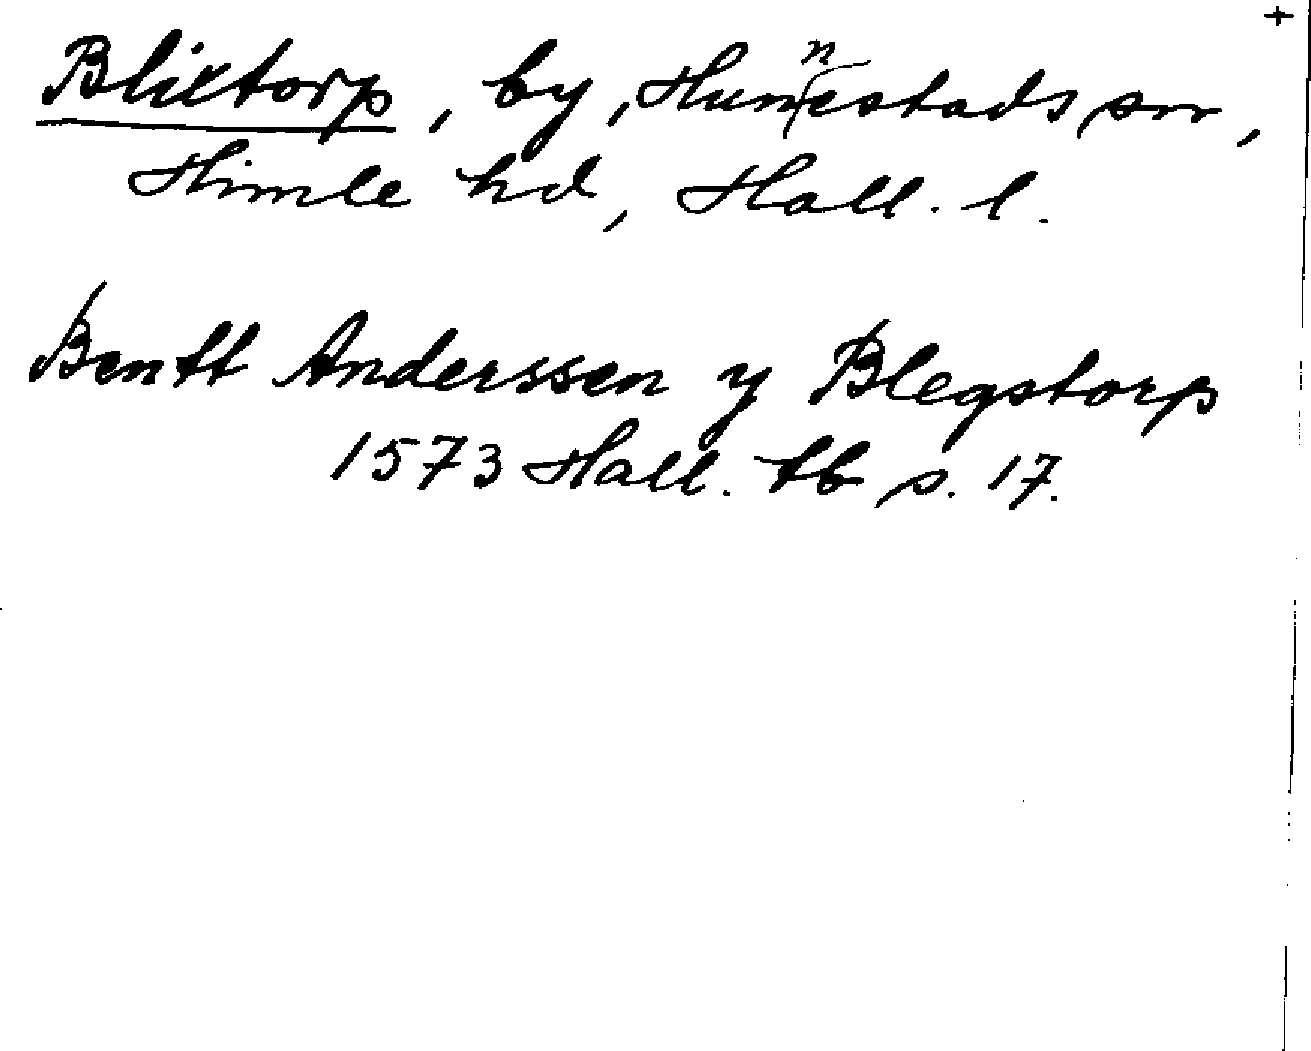 +
Blixtorp, by, Hunnestads sn,
Himle hd, Hall. l.
Bentt Anderssen y Blegstorp
1573 Hall. tb s. 17.